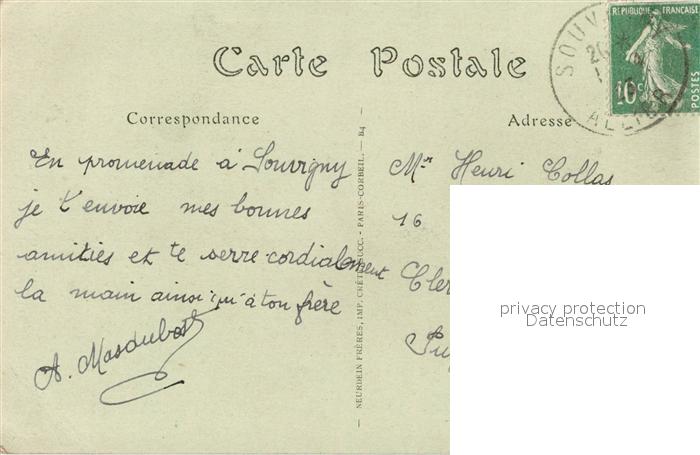 Carte Postale
RÉPUBLIQUE FRANÇAISE
10c
POSTES
SOUV
ALLIER
Correspondance
Adresse
En promenade à Souvigny
je t'envoie mes bonnes
amitiés et te serre cordialement
la main ainsi qu'à ton frère
A. Masdubost
NEURDEIN FRÈRES, IMP. CRÉTÉ, SUCC. — PARIS-CORBEIL. — B4
Mr Henri Collas
16
Cler
Puy
privacy protection
Datenschutz